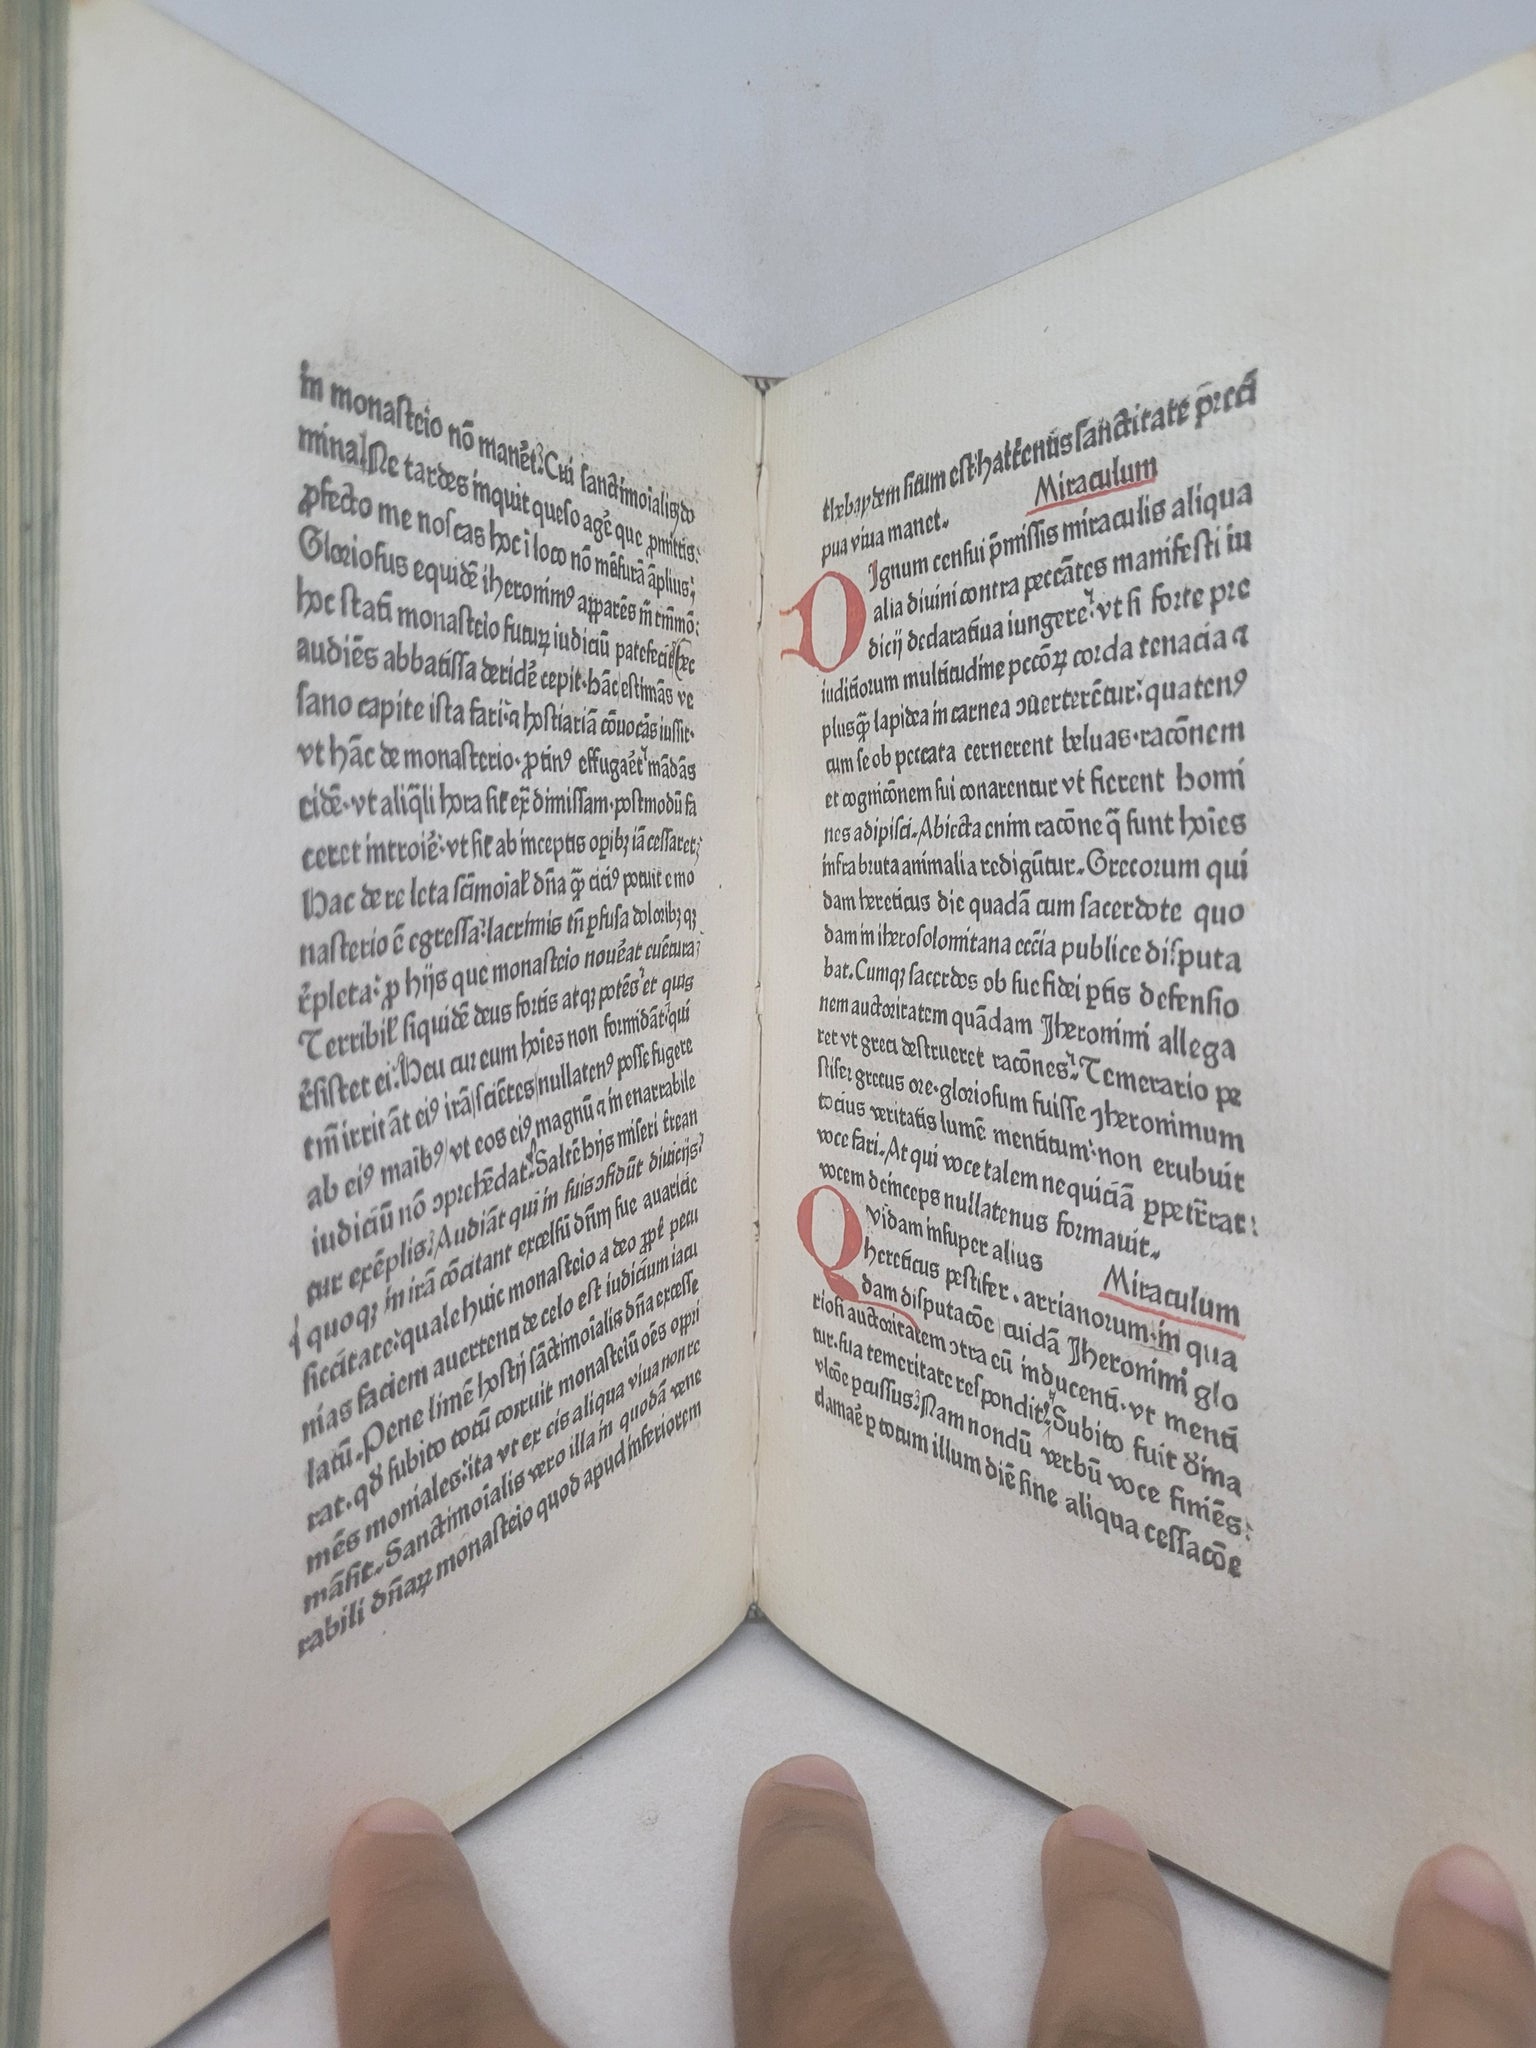 in monasteio nō manēt. Cui sanctimoialis, do
mina, Ne tardes inquit queso agē que ꝓmittis.
ꝓfecto me noscas hoc ī loco nō mēsurā āplius.
Gloriosus equidē iheronimꝰ apparēs m̄
hoc stati monasteio futurꝝ iudiciū patefecit hec
audiēs abbatissa deridē cepit. hāc estimās ve
sano capite ista fari. a hostiariā cōuocās iussit.
vt hāc de monasterio. ꝓtinꝰ effugaēt mādās
eidē. vt aliq̄li hora sil̄ ex̄ dimissam. postmodū fa
ceret introiē. vt sil̄ ab inceptis oꝑibꝫ iā cessaret
Hac de re leta scīmoial dn̄a q̄ꝫ citiꝰ potuit e mo
nasterio ē egressa. lacrimis tn̄ ꝑfusa doloribꝫ qꝫ
rēpleta. ꝓ hijs que monasteio nouēat euētura
Terribil siquidē deus fortis atqꝫ potēs et quis
rēsistet ei. Heu cur eum hoīes non formidāt qui
tm̄ irritāt eiꝰ irā, sciētes nullatenꝰ posse fugere
ab eiꝰ maībꝰ vt eos eiꝰ magnū a inenarrabile
iudiciū nō ꝯprehēdat. Saltē hijs miseri trean
tur exēplis. Audiāt qui in suis ꝯfidūt diuicijs.
quoqꝫ in irā cōcitant excelsū dn̄m sue auaricie
siccitate. quale huic monasteio a deo ꝓpt̄ pecu
nias faciem auertenti de celo est iudicium iacu
latū. Pene limē hostij sāctimoialis dn̄a excesse
rat. qd̄ subito totū corruit monasteiū oēs oppri
mēs moniales. ita vt ex eis aliqua viua non re
māsit. Sanctimoialis vero illa in quodā vene
rabili dn̄aꝝ monasteio quod apud inferiorem
thebaydem situm est. hattenus sanctitate p̄cci
pua viua manet.
Miraculum
DIgnum censui p̄missis miraculis aliqua
alia diuini contra peccātes manifesti iu
dicij declaratiua iungere. vt si forte pre
iudiciorum multitudine peccōꝝ corda tenacia a
plusq̄ꝫ lapidea in carnea ꝯuerterētur. quatenꝰ
cum se ob peccata cernerent beluas. racōnem
et cognicōnem sui conarentur vt fierent homi
nes adipisci. Abiecta enim racōne q̄ sunt hoīes
infra bruta animalia redigūtur. Grecorum qui
dam hereticus die quadā cum sacerdote quo
dam in iherosolomitana eccīa publice disputa
bat. Cumqꝫ sacerdos ob sue fidei ꝑtis defensio
nem auctoritatem quādam Jheronimi allega
ret vt greci destrueret racōnes. Temerario pe
stifer grecus ore. gloriosum fuisse Jheronimum
tocius veritatis lumē mentitum. non erubuit
voce fari. At qui voce talem nequiciā ꝑpetrarat.
vocem deinceps nullatenus formauit.
Miraculum
QVidam insuper alius
hereticus pestifer. arrianorum. in qua
dam disputacōe cuidā Jheronimi glo
riosi auctoritatem ꝯtra eū inducenti. vt menti
tur. sua temeritate respondit. Subito fuit diuina
vlcōe ꝑcussus. Nam nondū verbū voce finiēs.
damaē ꝑ totum illum diē sine aliqua cessacōe